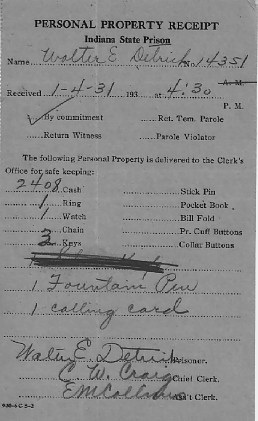 PERSONAL PROPERTY RECEIPT
Indiana State Prison
Name Walter E. Detrich No. 14351
A. M.
Received 1-4-31 193 at 4:30
P. M.
By commitment Ret. Tem. Parole
Return Witness Parole Violator
The following Personal Property is delivered to the Clerk's
Office for safe keeping:
2408 Cash Stick Pin
1 Ring Pocket Book
1 Watch Bill Fold
Chain Pr. Cuff Buttons
3 Keys Collar Buttons
1 Fountain Pen
1 calling card
Walter E. Detrich Prisoner.
C. W. Craig Chief Clerk.
Ass't Clerk.